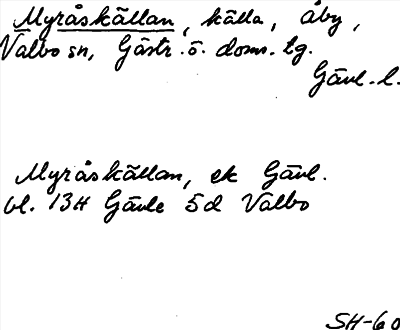 Myråskällan, källa, Åby,
Valbo sn, Gästr. ö. doms. tg.
Gävl. l.
Myråskällan, ek Gävl.
bl. 13H Gävle 5d Valbo
SH-60